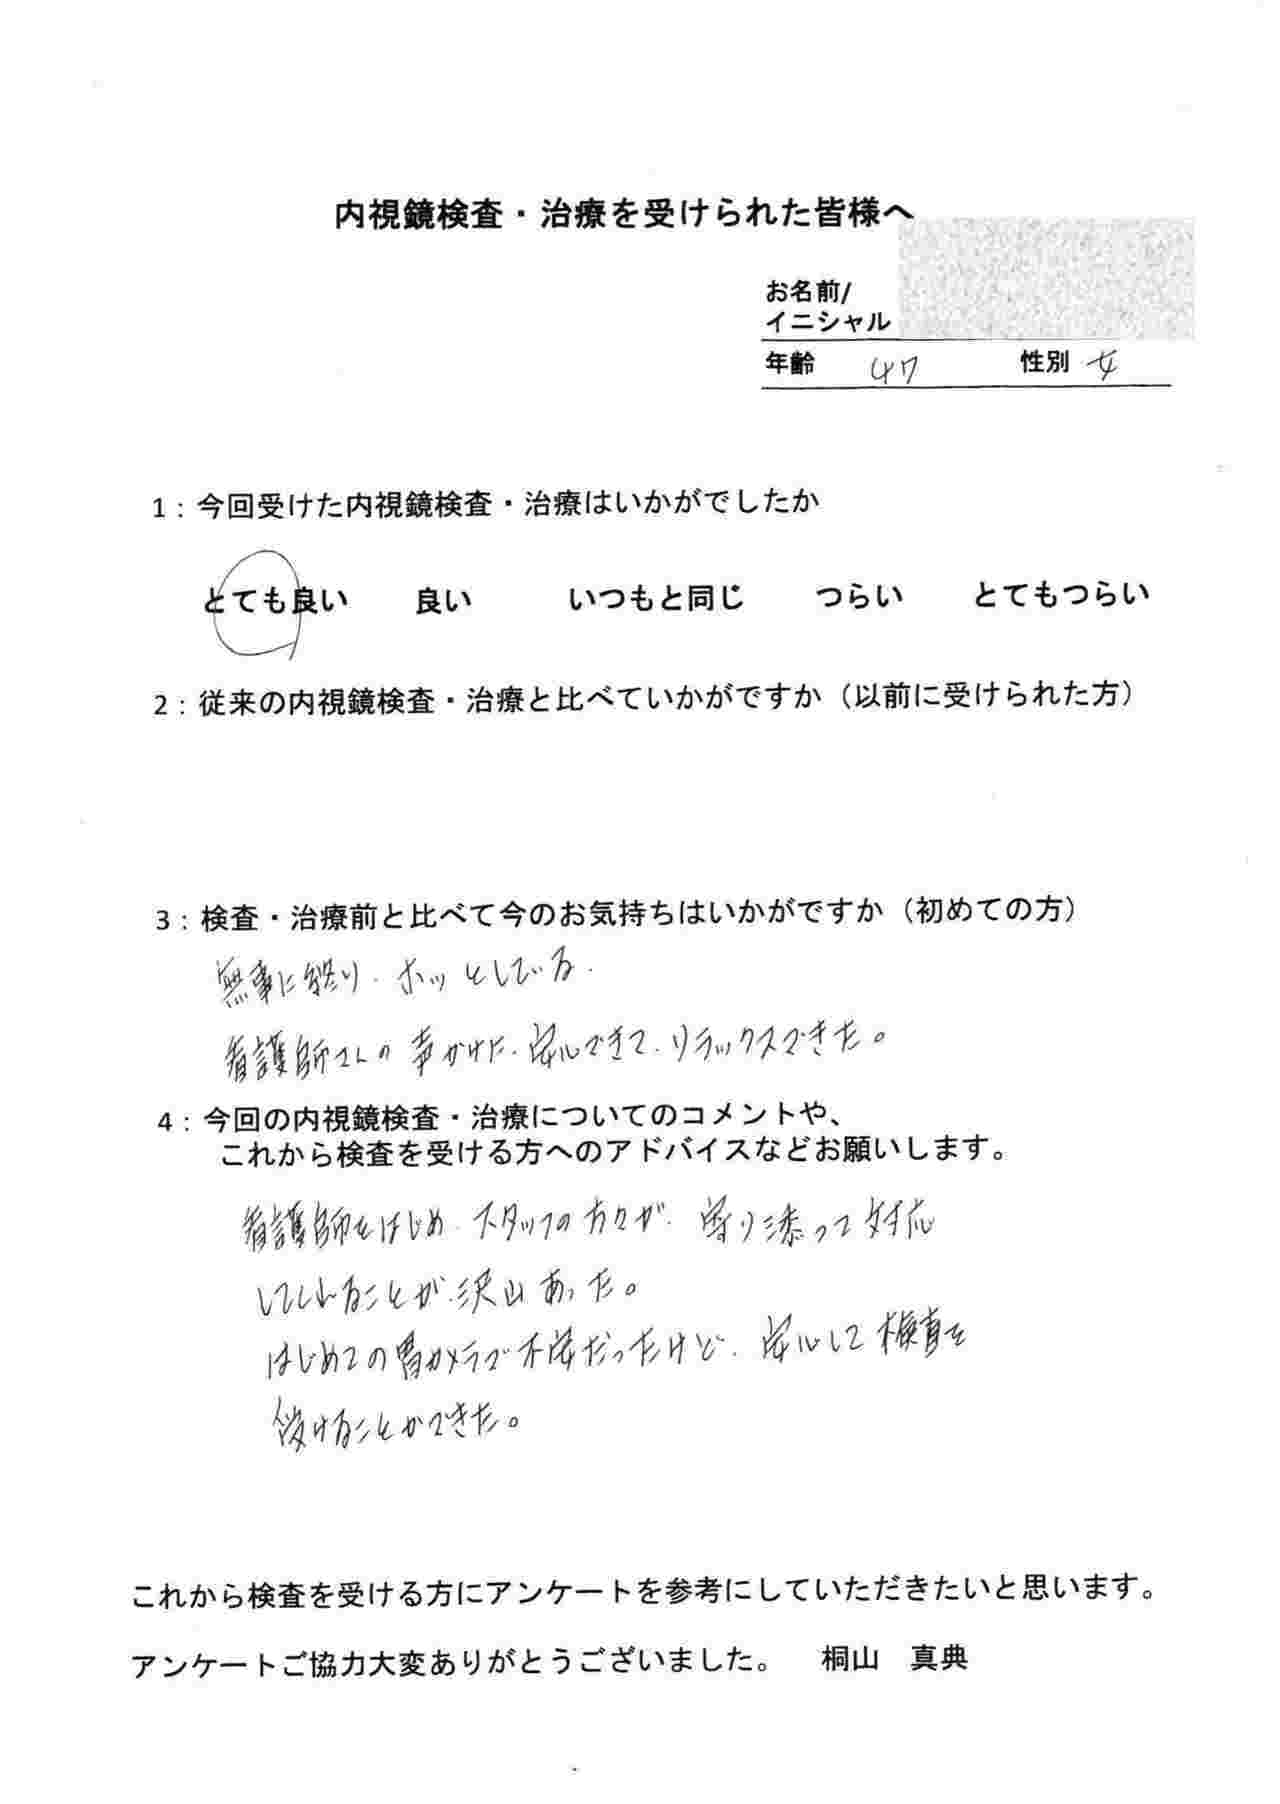 内視鏡検査・治療を受けられた皆様へ
お名前/
イニシャル
年齢 47 性別 女
1：今回受けた内視鏡検査・治療はいかがでしたか
とても良い 良い いつもと同じ つらい とてもつらい
2：従来の内視鏡検査・治療と比べていかがですか（以前に受けられた方）
3：検査・治療前と比べて今のお気持ちはいかがですか（初めての方）
無事に終り、ホッとしている。
看護師さんの声かけに、安心できて、リラックスできた。
4：今回の内視鏡検査・治療についてのコメントや、
これから検査を受ける方へのアドバイスなどお願いします。
看護師をはじめ、スタッフの方々が、寄り添って対応
してくれることが、沢山あった。
はじめての胃カメラで不安だったけど、安心して検査を
受けることができた。
これから検査を受ける方にアンケートを参考にしていただきたいと思います。
アンケートご協力大変ありがとうございました。 桐山 真典